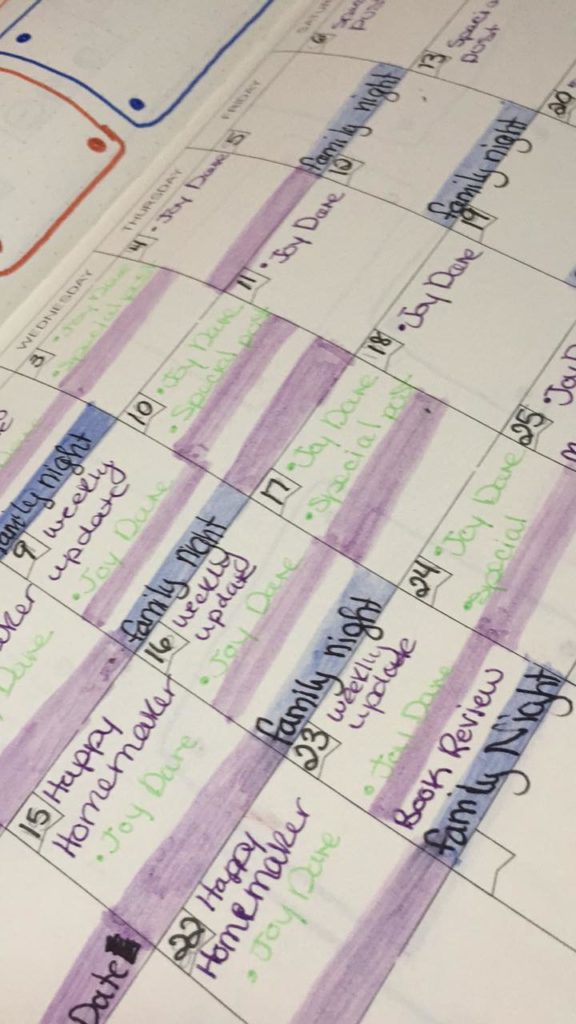 WEDNESDAY
THURSDAY
FRIDAY
SATU
family night
3
• Joy Dare
• Special post
4
• Joy Dare
5
family night
6
Special
post
maker
Dare
9
weekly
update
• Joy Dare
family night
10
• Joy Dare
• Special post
11
• Joy Dare
10
family night
13
Special
post
15
Happy
Homemaker
• Joy Dare
16
weekly
update
• Joy Dare
family night
17
• Joy Dare
• Special post
18
• Joy Dare
19
20
Date
22
Happy
Homemaker
• Joy Dare
23
weekly
update
• Joy Dare
Book Review
family Night
24
• Joy Dare
• Special
25
• Joy D